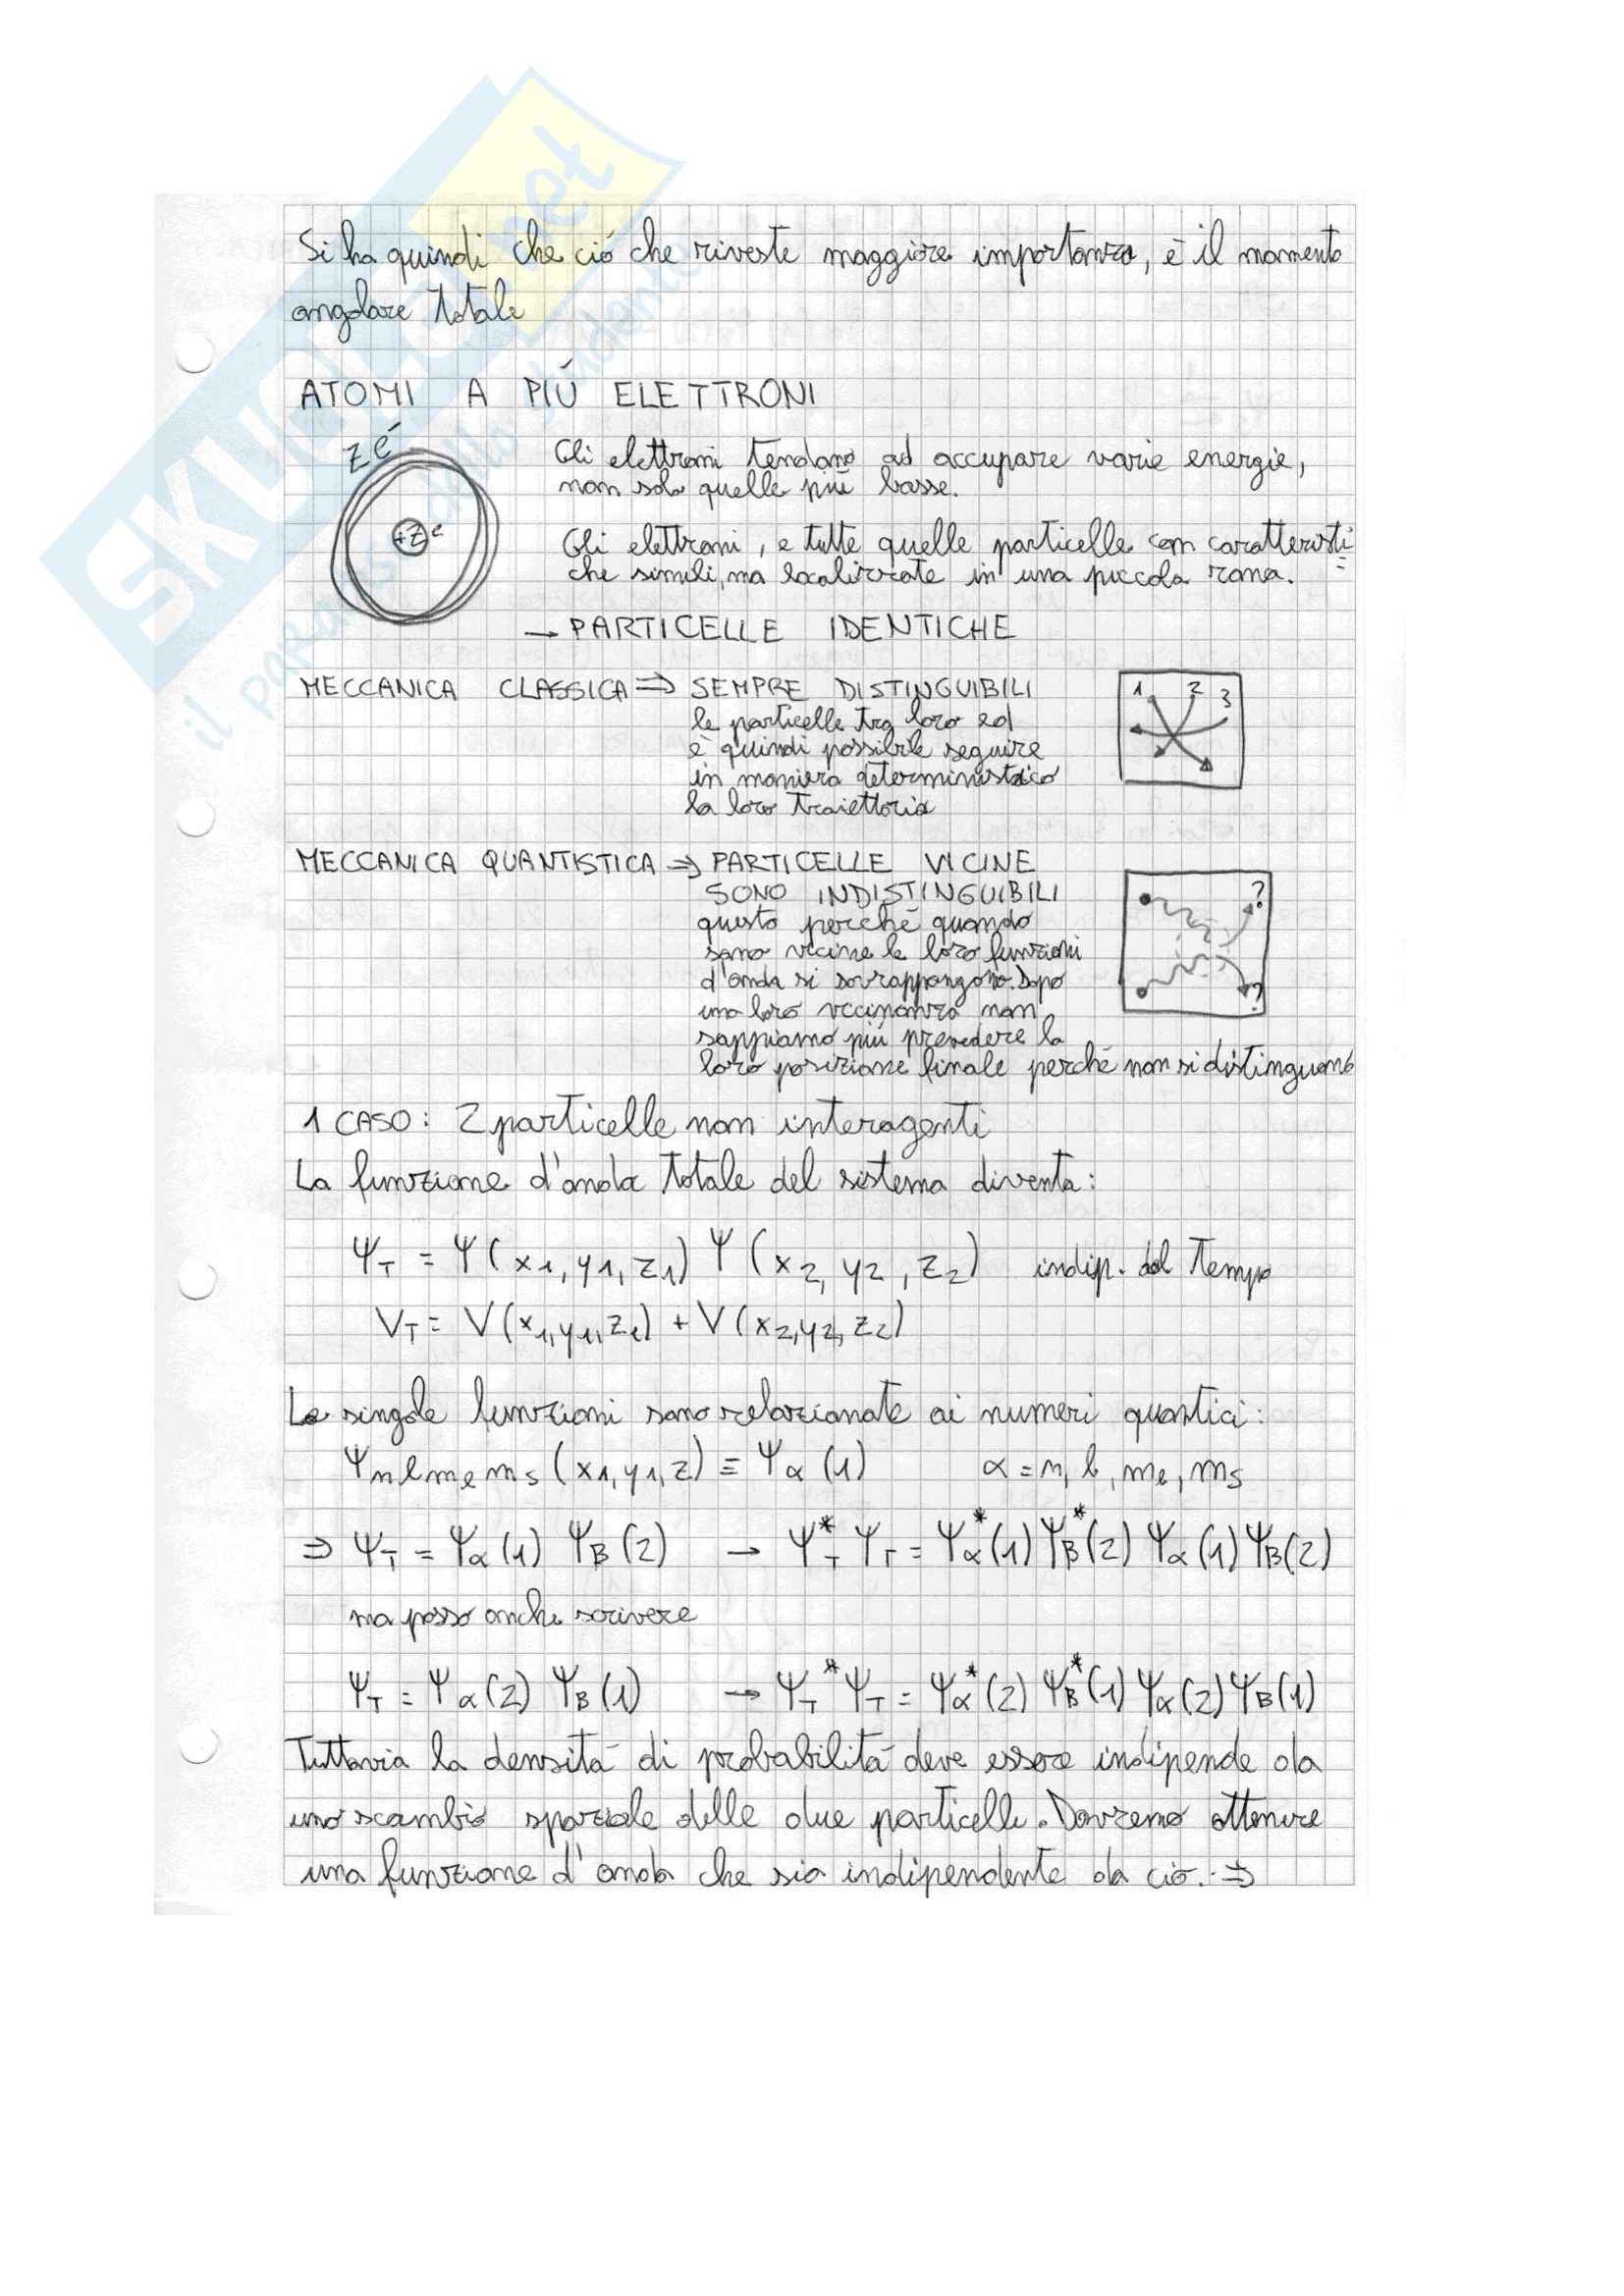 SKUOLA.net
il paradiso dello studente
Si ha quindi che ció che riveste maggiore importanza, è il momento
angolare totale
ATOMI A PIÚ ELETTRONI
Z e⁻
+Ze
Gli elettroni tendono ad occupare varie energie,
non solo quelle più basse.
Gli elettroni, e tutte quelle particelle con caratteristi=
che simili, ma localizzate in una piccola zona.
→ PARTICELLE IDENTICHE
MECCANICA CLASSICA ⇒ SEMPRE DISTINGUIBILI
le particelle tra loro ed
è quindi possibile seguire
in maniera
la loro traiettoria
1 2 3
MECCANICA QUANTISTICA ⇒ PARTICELLE VICINE
SONO INDISTINGUIBILI
questo perché quando
sono vicine le loro funzioni
d'onda si sovrappongono. Dopo
una loro vicinanza non
sappiamo più prevedere la
loro posizione finale perché non si distinguono
?
?
1 CASO: 2 particelle non interagenti
La funzione d'onda totale del sistema diventa:
Ψ_T = Ψ(x₁, y₁, z₁) Ψ(x₂, y₂, z₂) indip. dal tempo
V_T = V(x₁, y₁, z₁) + V(x₂, y₂, z₂)
Le singole funzioni sono relazionate ai numeri quantici:
Ψ_n l m_l m_s (x₁, y₁, z) ≡ Ψ_α(1) α = n, l, m_l, m_s
⇒ Ψ_T = Ψ_α(1) Ψ_B(2) → Ψ*_T Ψ_T = Ψ*_α(1) Ψ*_B(2) Ψ_α(1) Ψ_B(2)
ma posso anche scrivere
Ψ_T = Ψ_α(2) Ψ_B(1) → Ψ_T* Ψ_T = Ψ*_α(2) Ψ*_B(1) Ψ_α(2) Ψ_B(1)
Tuttavia la densitá di probabilitá deve essere indipende da
uno scambio spaziale delle due particelle. Dovremo ottenere
una funzione d'onda che sia indipendente da ció. ⇒